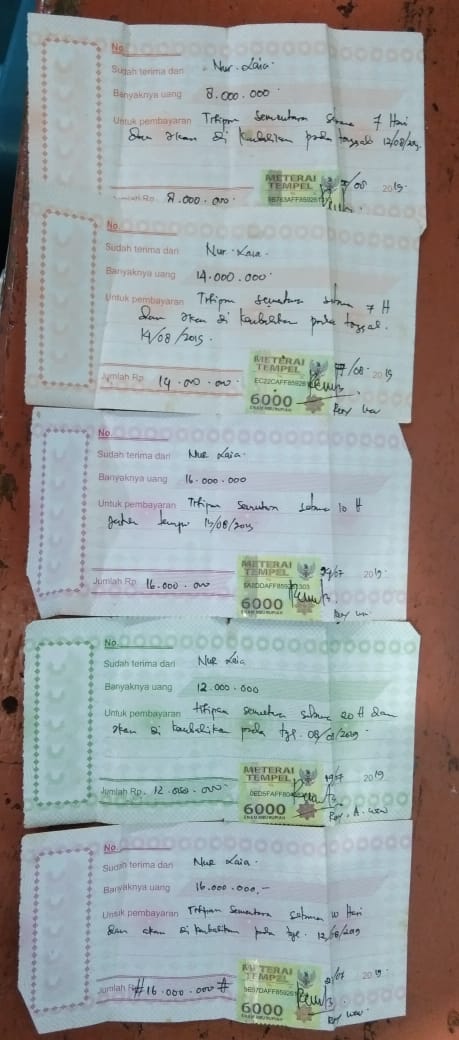 No.
Sudah terima dari Nur Laia
Banyaknya uang 8.000.000
Untuk pembayaran Titipan Sementara selama 7 Hari
dan akan di kembalikan pada tanggal 12/08/2019
METERAI TEMPEL
/08 2019
Jumlah Rp. 8.000.000
No.
Sudah terima dari Nur Laia
Banyaknya uang 14.000.000
Untuk pembayaran Titipan sementara selama 7 H
dan akan di kembalikan pada tanggal
14/08/2019.
METERAI TEMPEL
/08 2019
Jumlah Rp. 14.000.000
6000
ENAM RIBU RUPIAH
No.
Sudah terima dari Nur Laia
Banyaknya uang 16.000.000
Untuk pembayaran Titipan Sementara selama 10 H
jatuh tempo /08/2019
METERAI TEMPEL
/07 2019
Jumlah Rp. 16.000.000
6000
ENAM RIBU RUPIAH
No.
Sudah terima dari Nur Laia
Banyaknya uang 12.000.000
Untuk pembayaran titipan sementara selama 20 H dan
akan di kembalikan pada tgl. 08/08/2019
METERAI TEMPEL
19/07 2019
Jumlah Rp. 12.000.000
6000
ENAM RIBU RUPIAH
No.
Sudah terima dari Nur Laia
Banyaknya uang 16.000.000,-
Untuk pembayaran Titipan Sementara selama 10 Hari
dan akan di kembalikan pada tgl. 12/08/2019
METERAI TEMPEL
/07 2019
Jumlah Rp. # 16.000.000 #
6000
ENAM RIBU RUPIAH